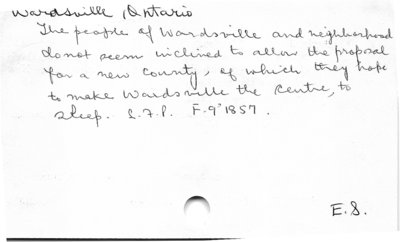 Wardsville, Ontario
The people of Wardsville and neighborhood
do not seem inclined to allow the proposal
for a new county, of which they hope
to make Wardsville the centre, to
sleep. L.F.P. F. 9' 1857.
E.S.